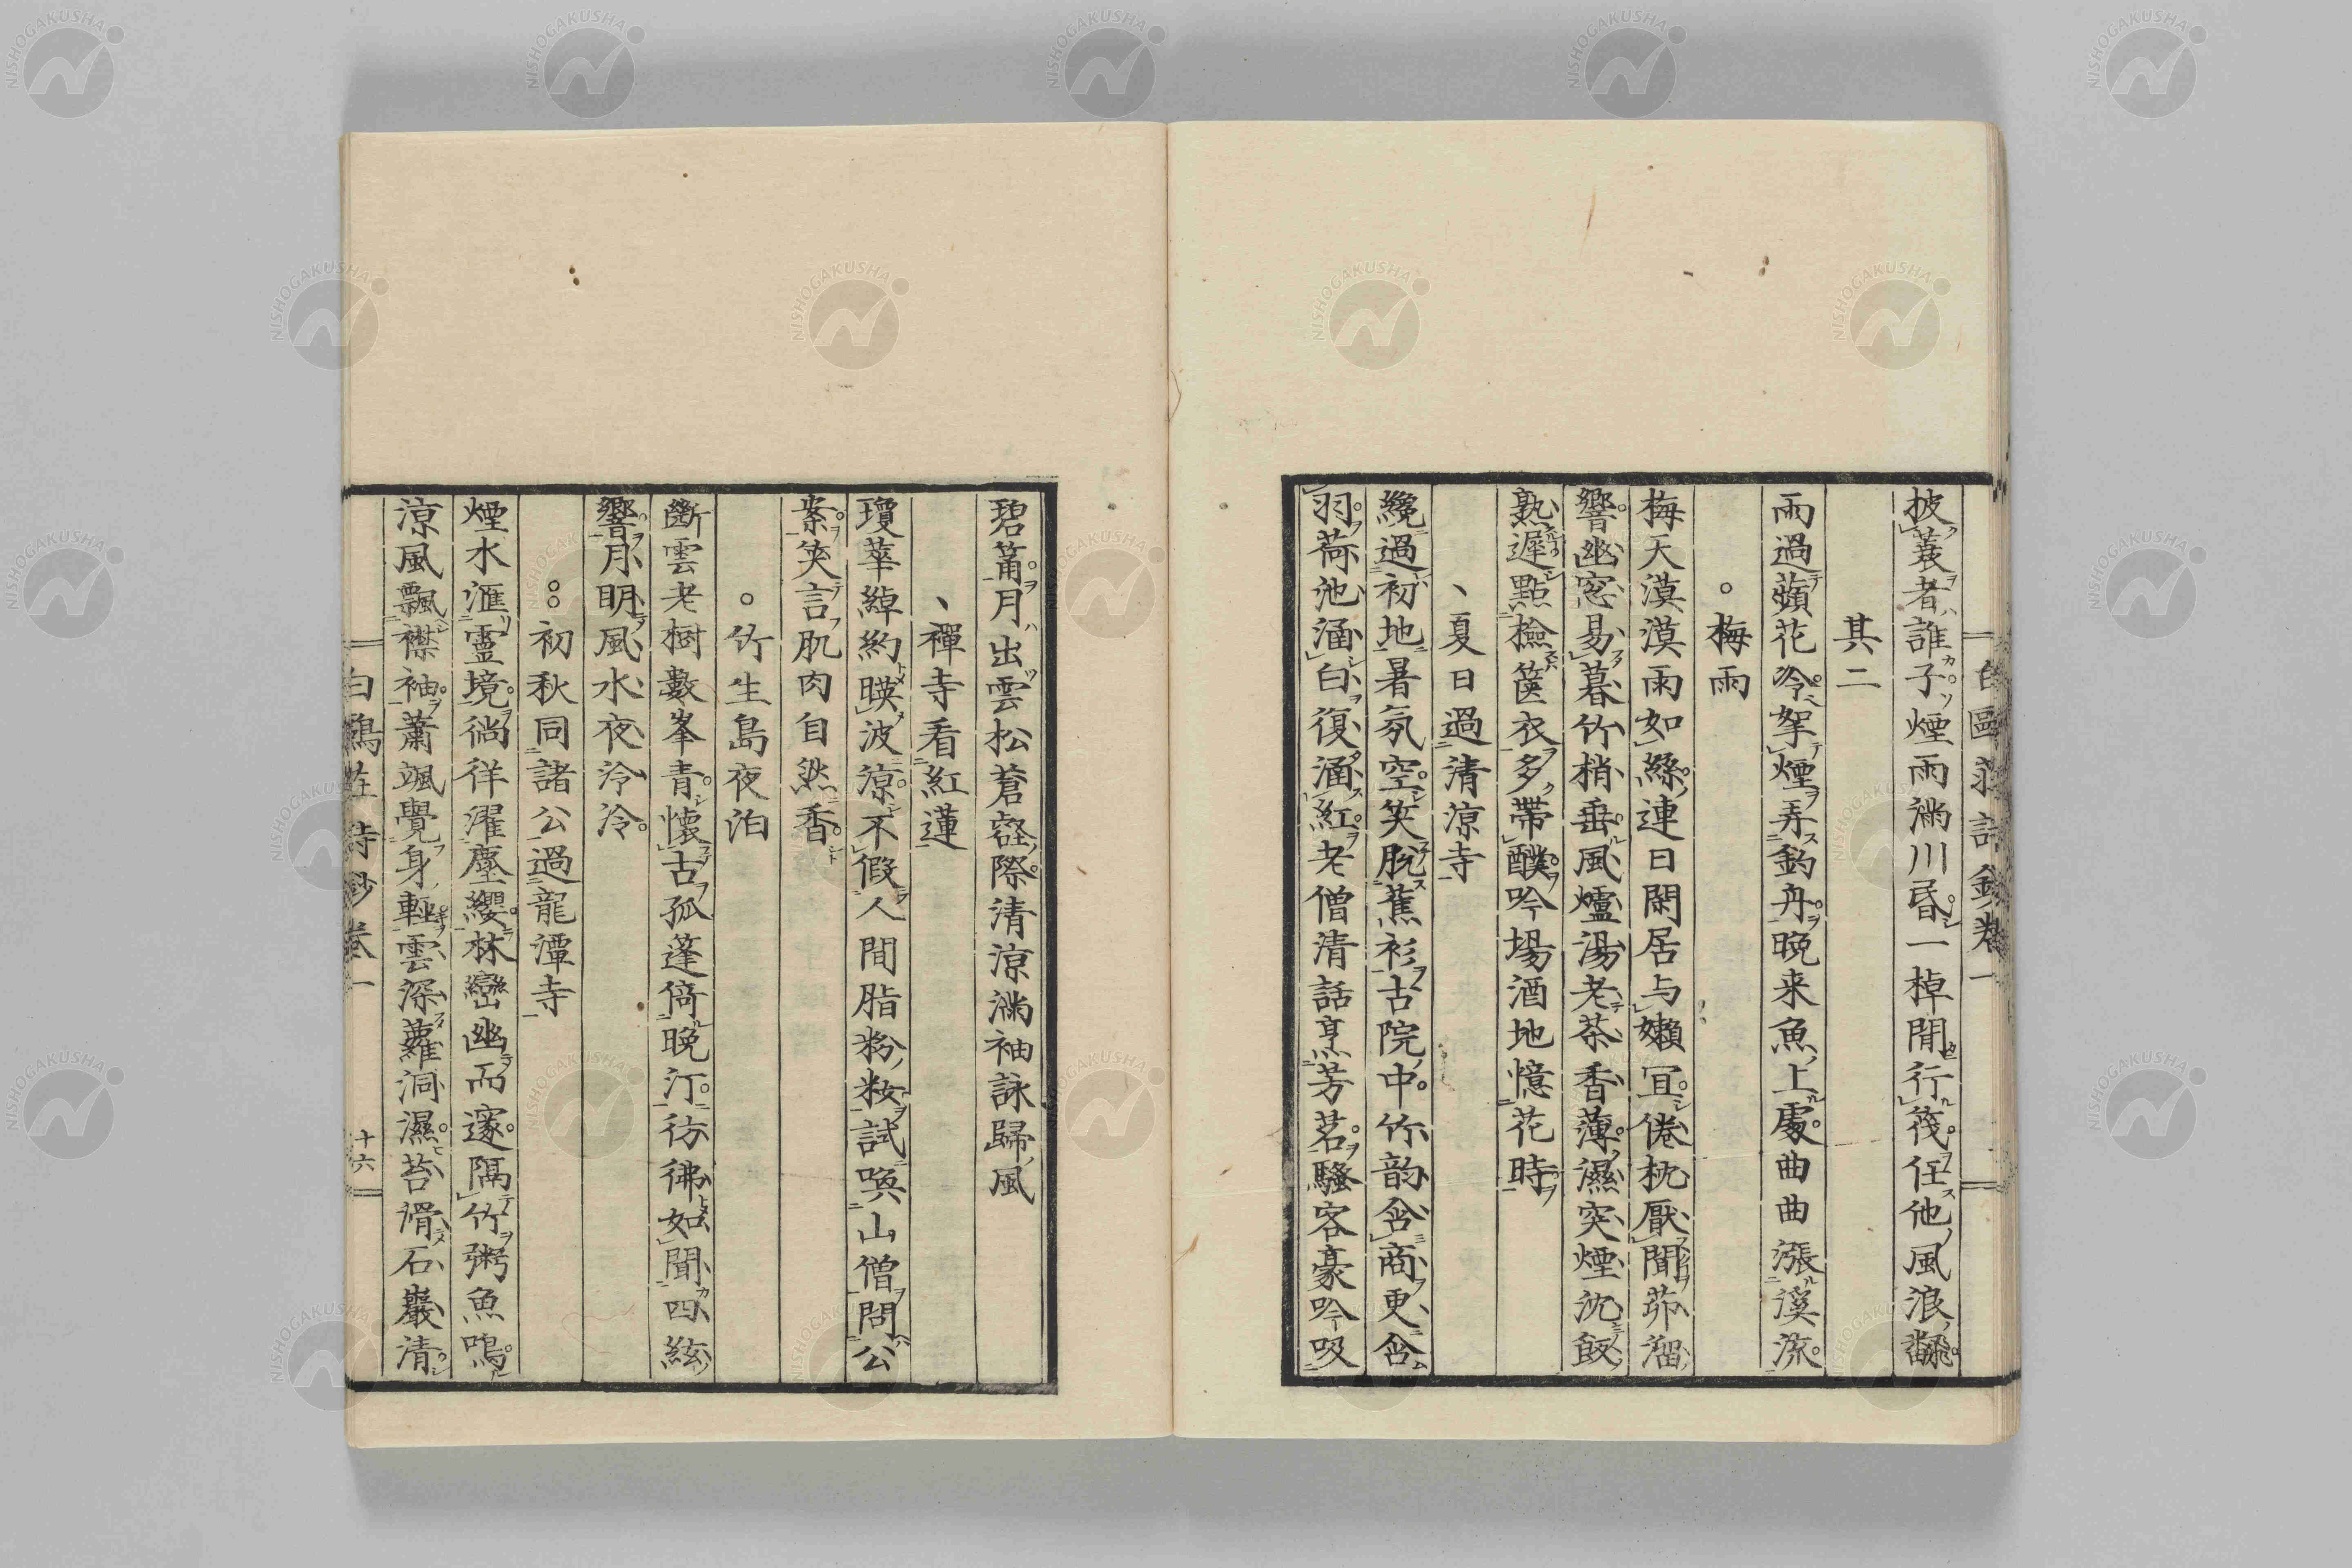 白鷗莊詩鈔卷一
披蓑者誰子煙雨滿川昏一棹閒行筏任他風浪飜
其二
雨過蘋花冷挐煙弄釣舟晚来魚上處曲曲漲溪流
梅雨
梅天漠漠雨如絲連日閑居与嬾宜倦枕厭聞茆溜
響幽窓易暮竹梢垂風爐湯老茶香薄濕突煙沈飯
熟遲點檢篋衣多帶醭吟場酒地憶花時
夏日過清涼寺
纔過初地暑氛空笑脫蕉衫古院中竹韵含商更含
羽荷池涵白復涵紅老僧清話烹芳茗騷客豪吟吸
碧筩月出雲松蒼壑際清涼滿袖詠歸風
禪寺看紅蓮
瓊華綽約暎波涼不假人間脂粉粧試喚山僧問公
案笑言肌肉自然香
竹生島夜泊
斷雲老樹數峯青懷古孤蓬倚晚汀彷彿如聞四絃
響月明風水夜泠泠
初秋同諸公過龍潭寺
煙水滙靈境徜徉濯塵纓林巒幽而邃隔竹粥魚鳴
涼風飄襟袖蕭颯覺身輕雲深蘿洞濕苔滑石巖清
白鷗莊詩鈔卷一
十六
NISHOGAKUSHA